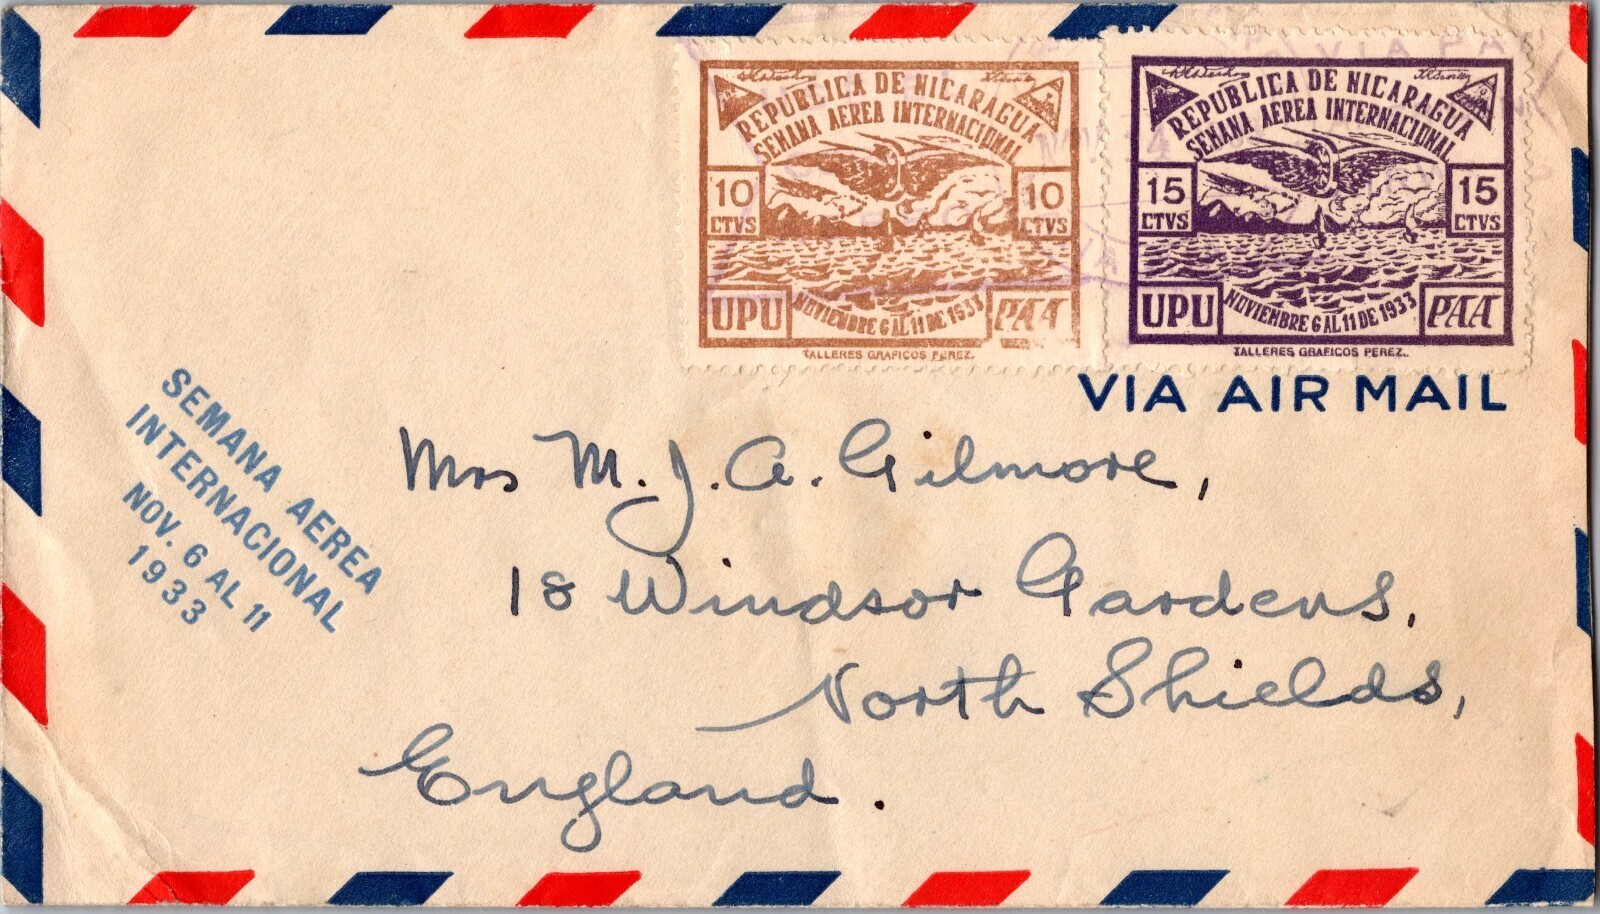 REPUBLICA DE NICARAGUA
SEMANA AEREA INTERNACIONAL
10 CTVS
10 CTVS
UPU
NOVIEMBRE 6 AL 11 DE 1933
PAA
TALLERES GRAFICOS PEREZ.
REPUBLICA DE NICARAGUA
SEMANA AEREA INTERNACIONAL
15 CTVS
15 CTVS
UPU
NOVIEMBRE 6 AL 11 DE 1933
PAA
TALLERES GRAFICOS PEREZ.
VIA AIR MAIL
SEMANA AEREA
INTERNACIONAL
NOV. 6 AL 11
1933
Mrs M. J. A. Gilmore,
18 Windsor Gardens,
North Shields,
England.